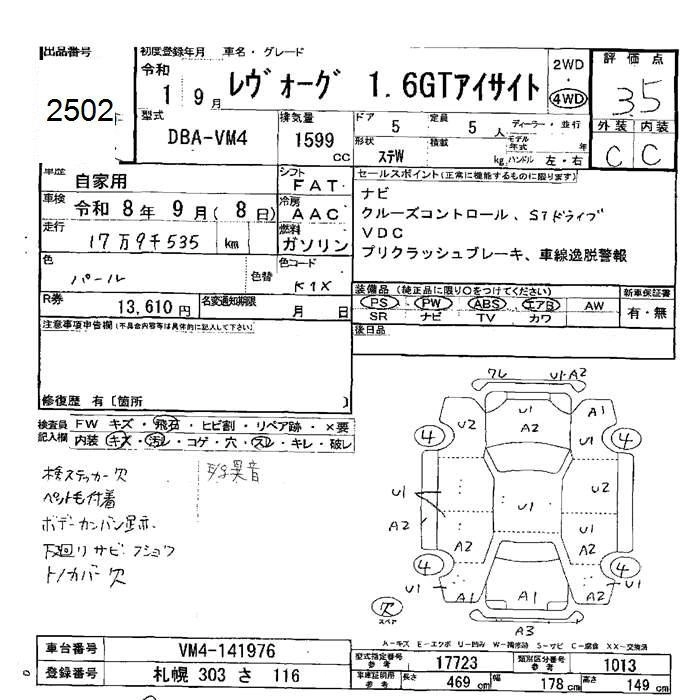 出品番号
2502
初度登録年月 車名・グレード
令和 1 9月 レヴォーグ 1.6GTアイサイト
2WD ・ 4WD
評価点
3.5
外装 内装
C C
型式 DBA-VM4
排気量 1599 CC
ドア 5 定員 5 人
形状 ステW 積載 kg
ディーラー・並行
モデル年式 年
ハンドル 左・右
車歴 自家用
シフト FAT
車検 令和 8年 9月 (8日)
冷房 AAC
走行 17万9千535 km
燃料 ガソリン
色 パール 色替
色コード K1X
R券 13,610円 名変通知期限 月 日
セールスポイント(正常に機能するものに限ります)
ナビ
クルーズコントロール、S1ドライブ
VDC
プリクラッシュブレーキ、車線逸脱警報
装備品 (純正品に限り○をつけてください)
PS PW ABS エアB AW
SR ナビ TV カワ
新車保証書
有・無
後日品
注意事項申告欄(不具合内容等は具体的に記入して下さい)
修復歴 有〔箇所 〕
検査員記入欄
FW キズ・飛石・ヒビ割・リペア跡・×要
内装 キズ・汚レ・コゲ・穴・スレ・キレ・破レ
検ステッカー欠
異音
ペット毛付着
ボデーカンバン跡示
下廻リサビフショク
トノカバー欠
ワレ U1・A2
U1 A2
U2 A1
4 U1 4
U1 U1 U2
A2 A2 A2
4 4
U1 A1 A1 A2 U1
欠 スペア
A3
A-キズ E-エクボ U-凹み W-補修跡 S-サビ C-腐食 XX-交換済
車台番号 VM4-141976
登録番号 札幌 303 さ 116
型式指定番号 参考 17723
類別区分番号 参考 1013
車庫証明用 参考 長さ 469 cm 幅 178 cm 高さ 149 cm